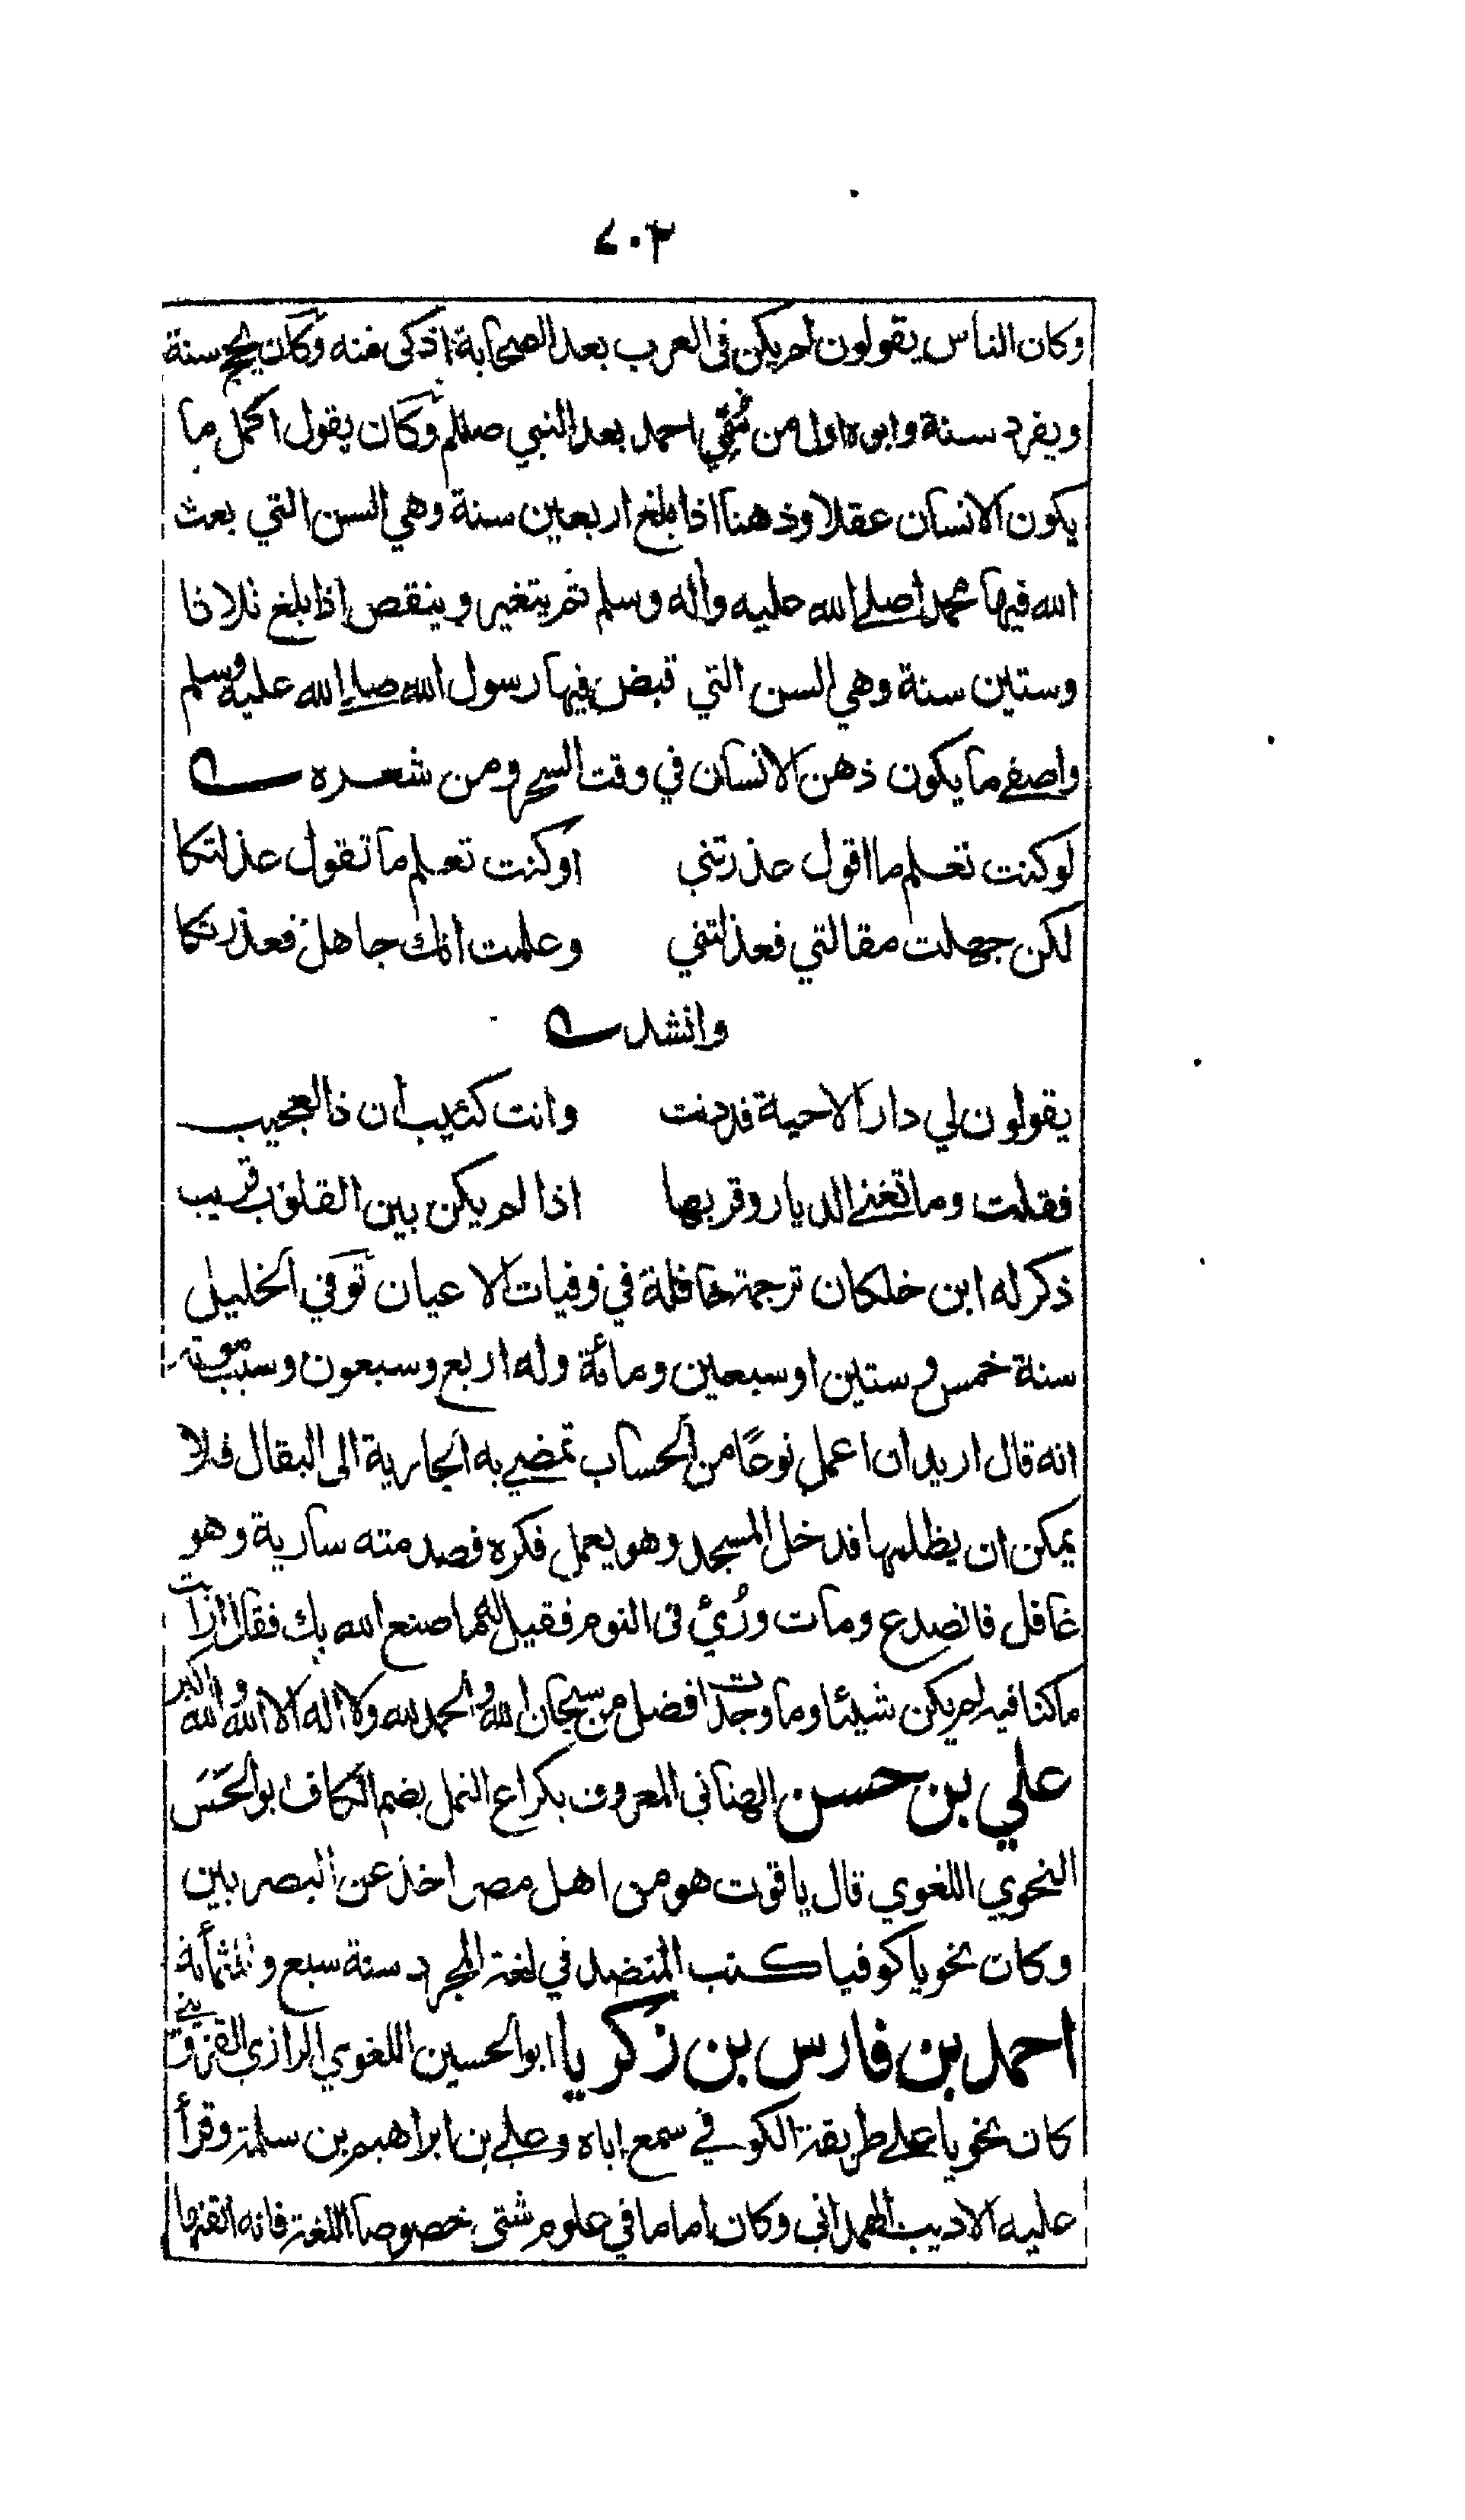 ٤٠٢
وكان الناس يقولون لم يكن فى العرب بعد الصحابة اذكى منه وكان يحج سنة
ويفرد سنة وابوه اول من سُمّي احمد بعد النبي صللم وكان يقول اكمل ما
يكون الانسان عقلا وذهنا اذا بلغ اربعين سنة وهي السن التي بعث
الله فيها محمدا صلى الله عليه واله وسلم ثم يتغير وينقص اذا بلغ ثلاثا
وستين سنة وهي السن التي قبض فيها رسول الله صلى الله عليه وسلم
واصفى ما يكون ذهن الانسان في وقت السحر ومن شعره
لو كنت تعلم ما اقول عذرتني او كنت تعلم ما تقول عذلتكا
لكن جهلت مقالتي فعذلتني وعلمت انك جاهل فعذرتكا
وانشد
يقولون لي دار الاحبة قد دنت وانت كئيب ان ذا لعجيب
فقلت وما تغنى الديار وقربها اذا لم يكن بين القلوب قريب
ذكر له ابن خلكان ترجمة حافلة في وفيات الاعيان توفي الخليل
سنة خمس وستين او سبعين ومائة وله اربع وسبعون وسبب موته
انه قال اريد ان اعمل نوعًا من الحساب تمضي به الجارية الى البقال فلا
يمكن ان يظلمها فدخل المسجد وهو يعمل فكره فصدمته سارية وهو
غافل فانصدع ومات ورُئي فى النوم فقيل له ما صنع الله بك فقال ارايت
ما كنا فيه لم يكن شيئا وما وجدت افضل من سبحان الله والحمد لله ولا اله الا الله والله اكبر
علي بن حسن الهنائي المعروف بكراع النمل بضم الكاف ابو الحسن
النحوي اللغوي قال ياقوت هو من اهل مصر اخذ عن البصريين
وكان نحويا كوفيا كتب المنضد في لغة المجرد سنة سبع وثلثمأئة
احمد بن فارس بن زكريا ابو الحسين اللغوي الرازي القزويني
كان نحويا على طريقة الكوفي سمع اباه وعلي بن ابراهيم بن سلمة وقرأ
عليه الاديب الهمداني وكان اماما في علوم شتى خصوصا اللغة فانه اتقنها